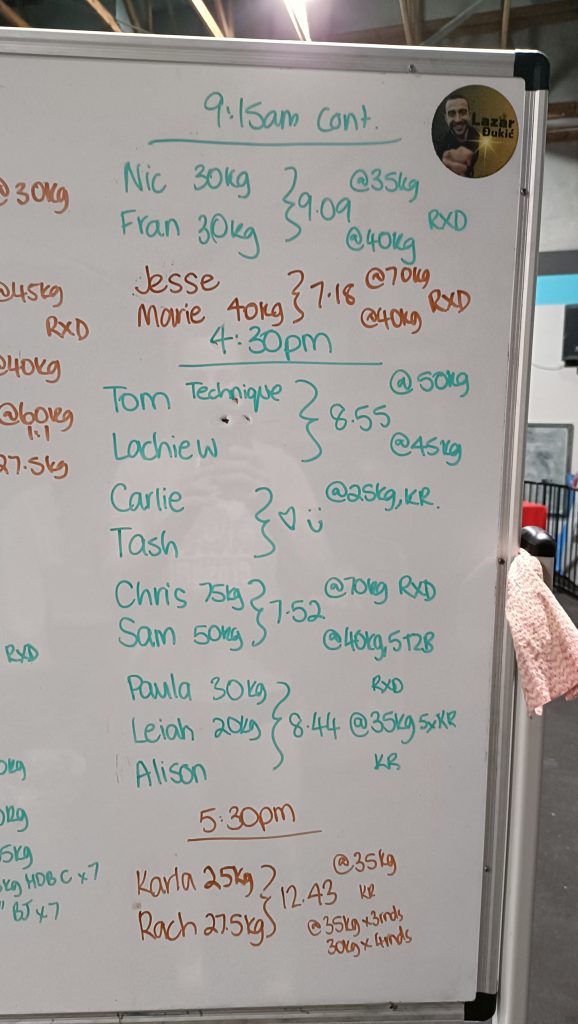 9:15am cont.
Lazar
Đukić
Nic 30kg @35kg
9.09 RXD
Fran 30kg @40kg
Jesse @70kg
7.18 RXD
Marie 40kg @40kg
4:30pm
Tom Technique @50kg
8.55
Lachiew @45kg
Carlie @25kg, KR.
Tash
Chris 75kg @70kg RXD
7.52
Sam 50kg @40kg, STZB
Paula 30kg RXD
Leiah 20kg 8.44 @35kg 5xKR
Alison KR
5:30pm
Karla 25kg @35kg
12.43 KR
Rach 27.5kg @35kg x 3rnds
30kg x 4rnds
@30kg
@45kg
RXD
@40kg
@60kg
1:1
27.5kg
RXD
kg
kg
5kg
kg HDBC x7
" BJ x7